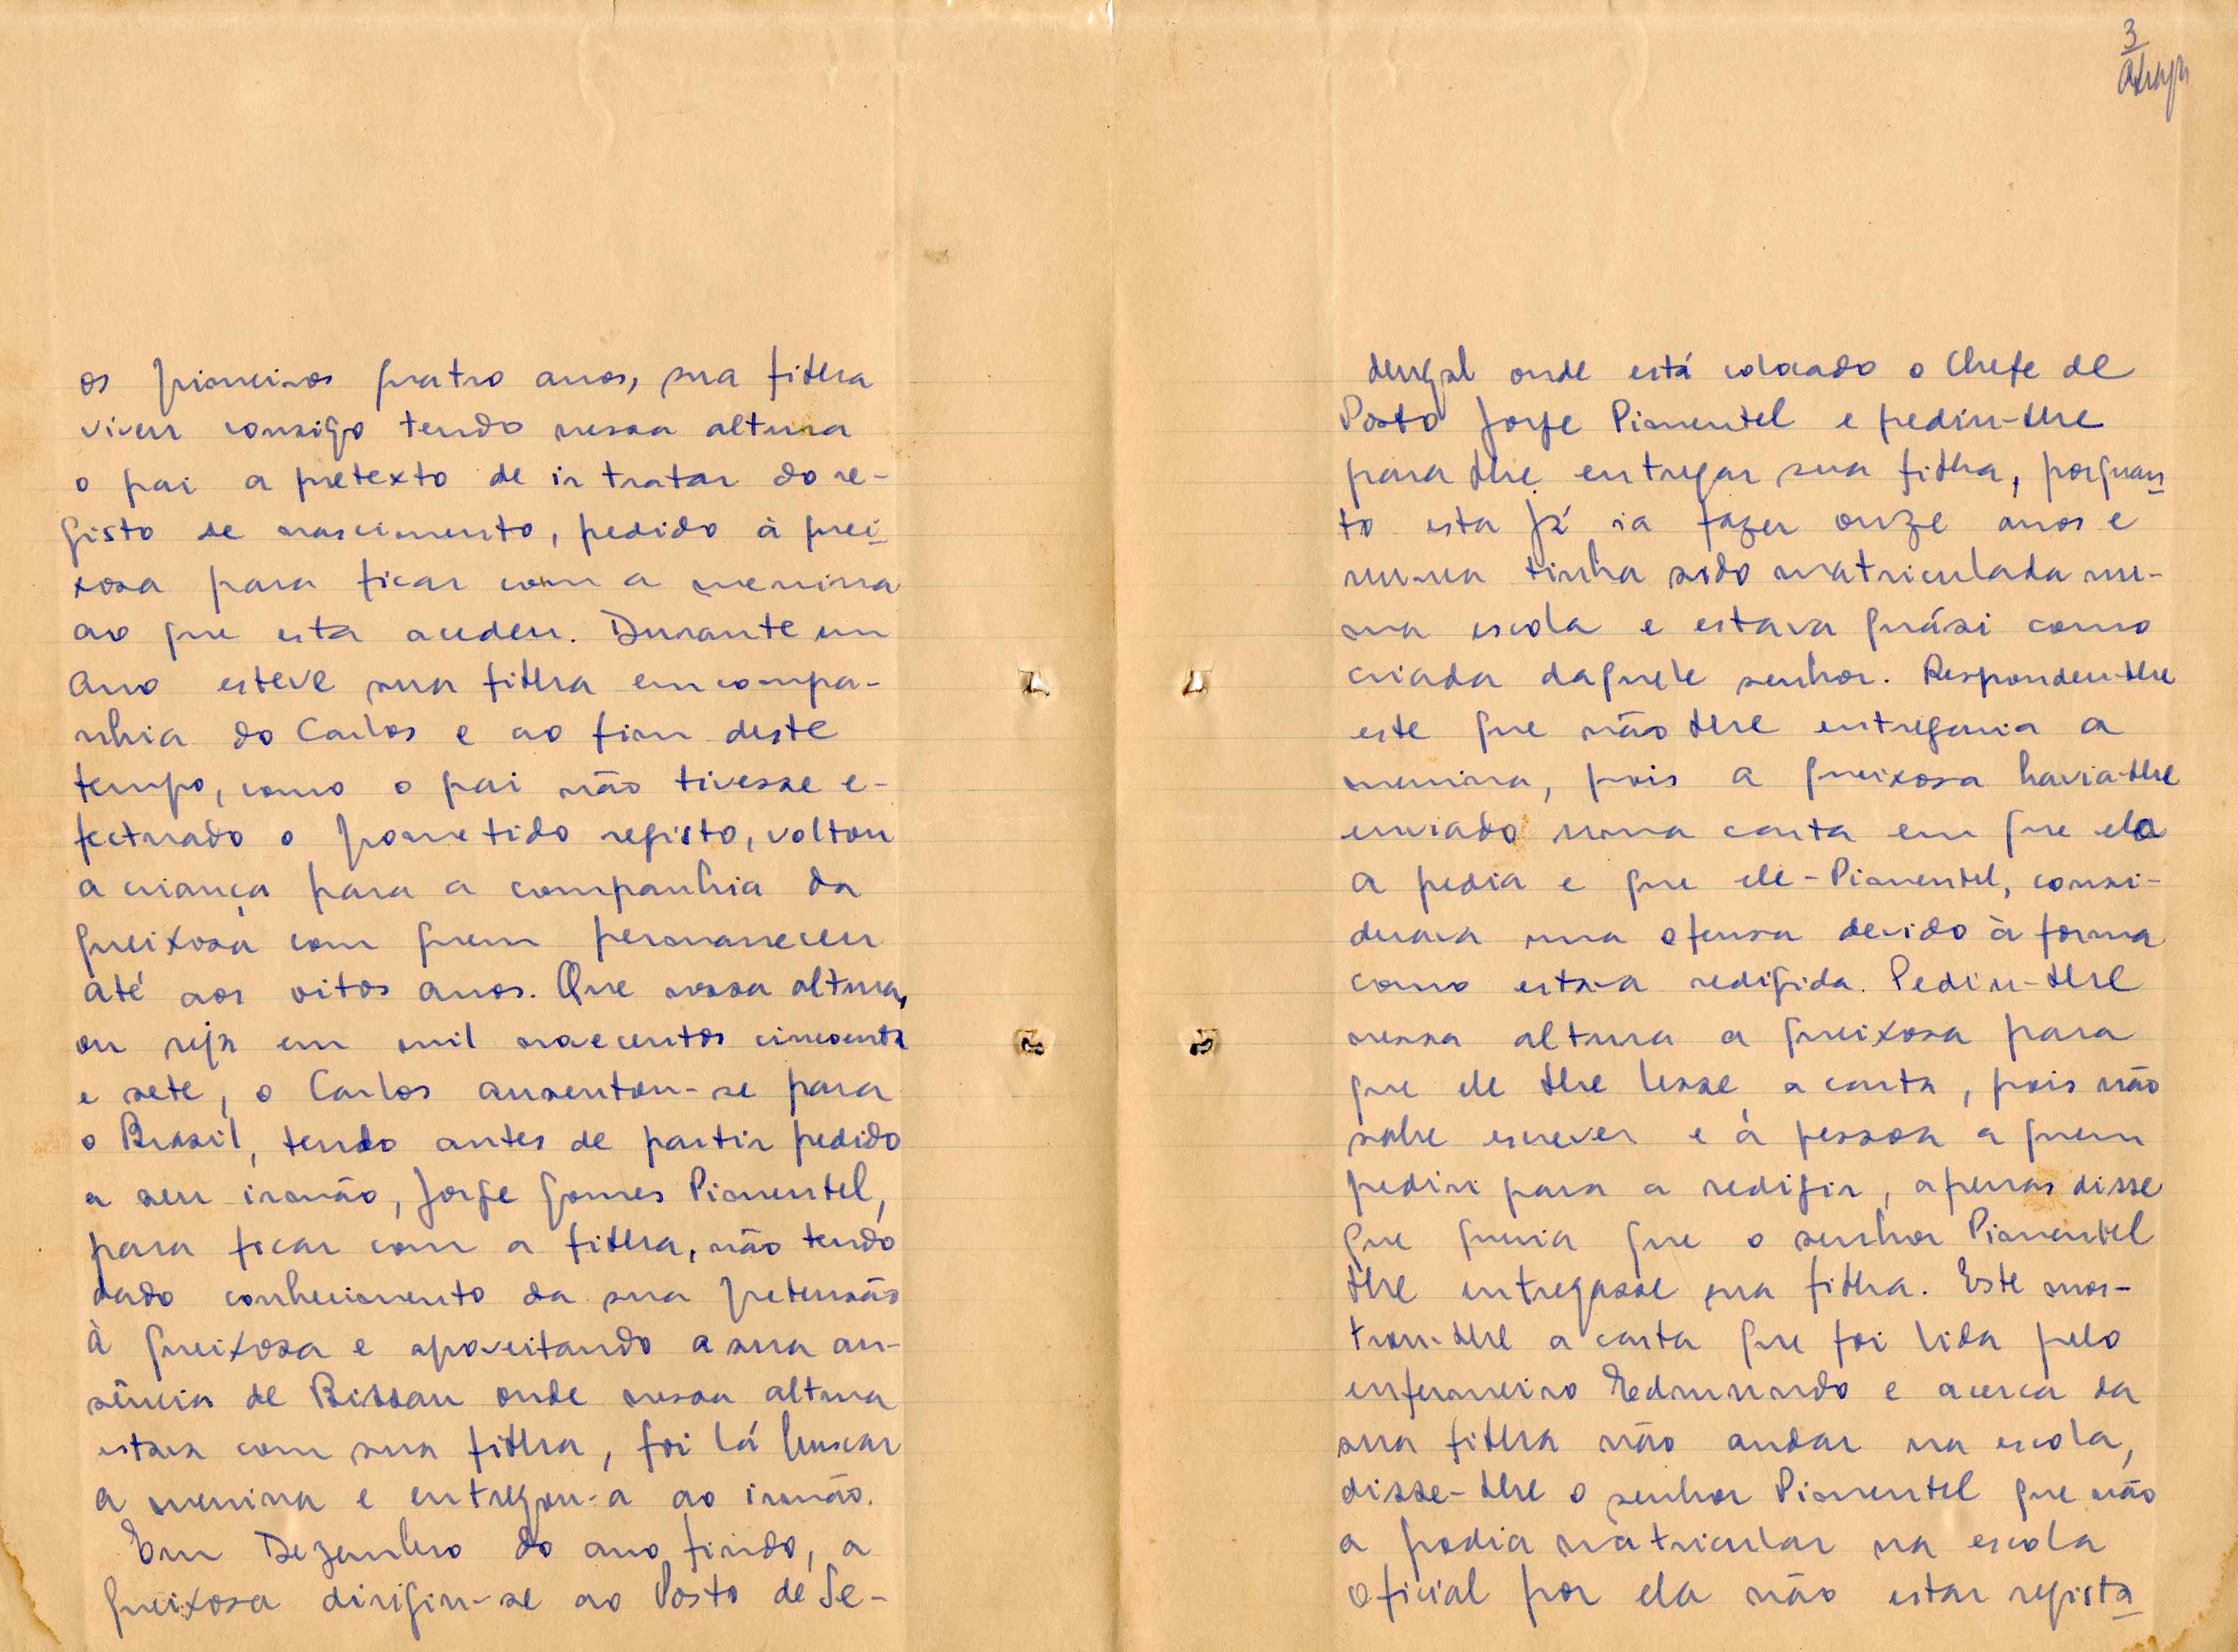 os primeiros quatro anos, sua filha
viveu consigo tendo nessa altura
o pai a pretexto de ir tratar do re-
gisto de nascimento, pedido à quei
xosa para ficar com a menina
ao que esta acedeu. Durante um
ano esteve sua filha em compa-
nhia do Carlos e ao fim deste
tempo, como o pai não tivesse e-
fectuado o prometido registo, voltou
a criança para a companhia da
queixosa com quem permaneceu
até aos oitos anos. Que nessa altura,
ou seja em mil novecentos cincoenta
e sete, o Carlos ausentou-se para
o Brasil, tendo antes de partir pedido
a seu irmão, Jorge Gomes Pimentel,
para ficar com a filha, não tendo
dado conhecimento da sua pretensão
à queixosa e aproveitando a sua au-
sência de Bissau onde nessa altura
estava com sua filha, foi lá buscar
a menina e entregou-a ao irmão.
Em Dezembro do ano findo, a
queixosa dirigiu-se ao Posto de Se-
3
dengal onde está colocado o Chefe de
Posto Jorge Pimentel e pediu-lhe
para lhe entregar sua filha, porquan
to esta já ia fazer onze anos e
nunca tinha sido matriculada nu-
ma escola e estava quási como
criada daquele senhor. Respondeu-lhe
este que não lhe entregaria a
menina, pois a queixosa havia-lhe
enviado uma carta em que ela
a pedia e que ele-Pimentel, consi-
derava uma ofensa devido à forma
como estava redigida. Pediu-lhe
nessa altura a queixosa para
que ele lhe lesse a carta, pois não
sabe escrever e à pessoa a quem
pediu para a redigir, apenas disse
que queria que o senhor Pimentel
lhe entregasse sua filha. Este mos-
trou-lhe a carta que foi lida pelo
enfermeiro Edmundo e acerca da
sua filha não andar na escola,
disse-lhe o senhor Pimentel que não
a podia matricular na escola
oficial por ela não estar regista